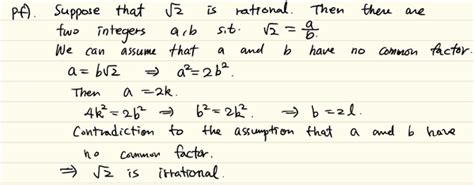 pf). Suppose that √2 is rational. Then there are
two integers a,b s.t. √2 = a/b.
We can assume that a and b have no common factor.
a = b√2 ⇒ a² = 2b².
Then a = 2k.
4k² = 2b² ⇒ b² = 2k². ⇒ b = 2l.
Contradiction to the assumption that a and b have
no common factor.
⇒ √2 is irrational.